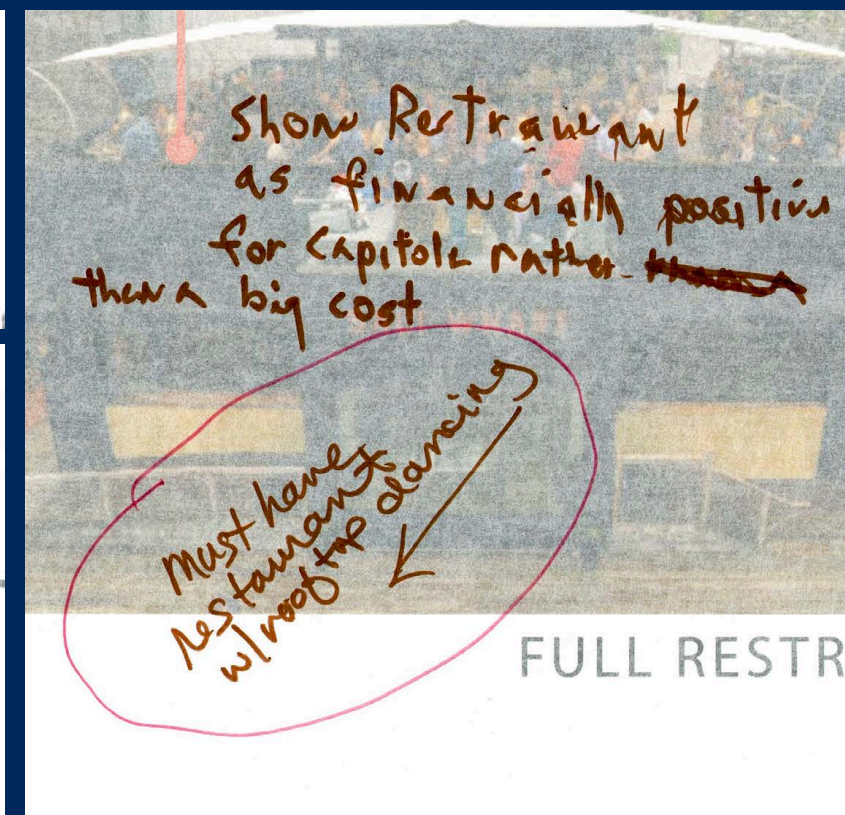 Show Restrauant
as financially positive
for Capitola rather
than a big cost
must have
restaurant
w/ rooftop dancing
FULL RESTR